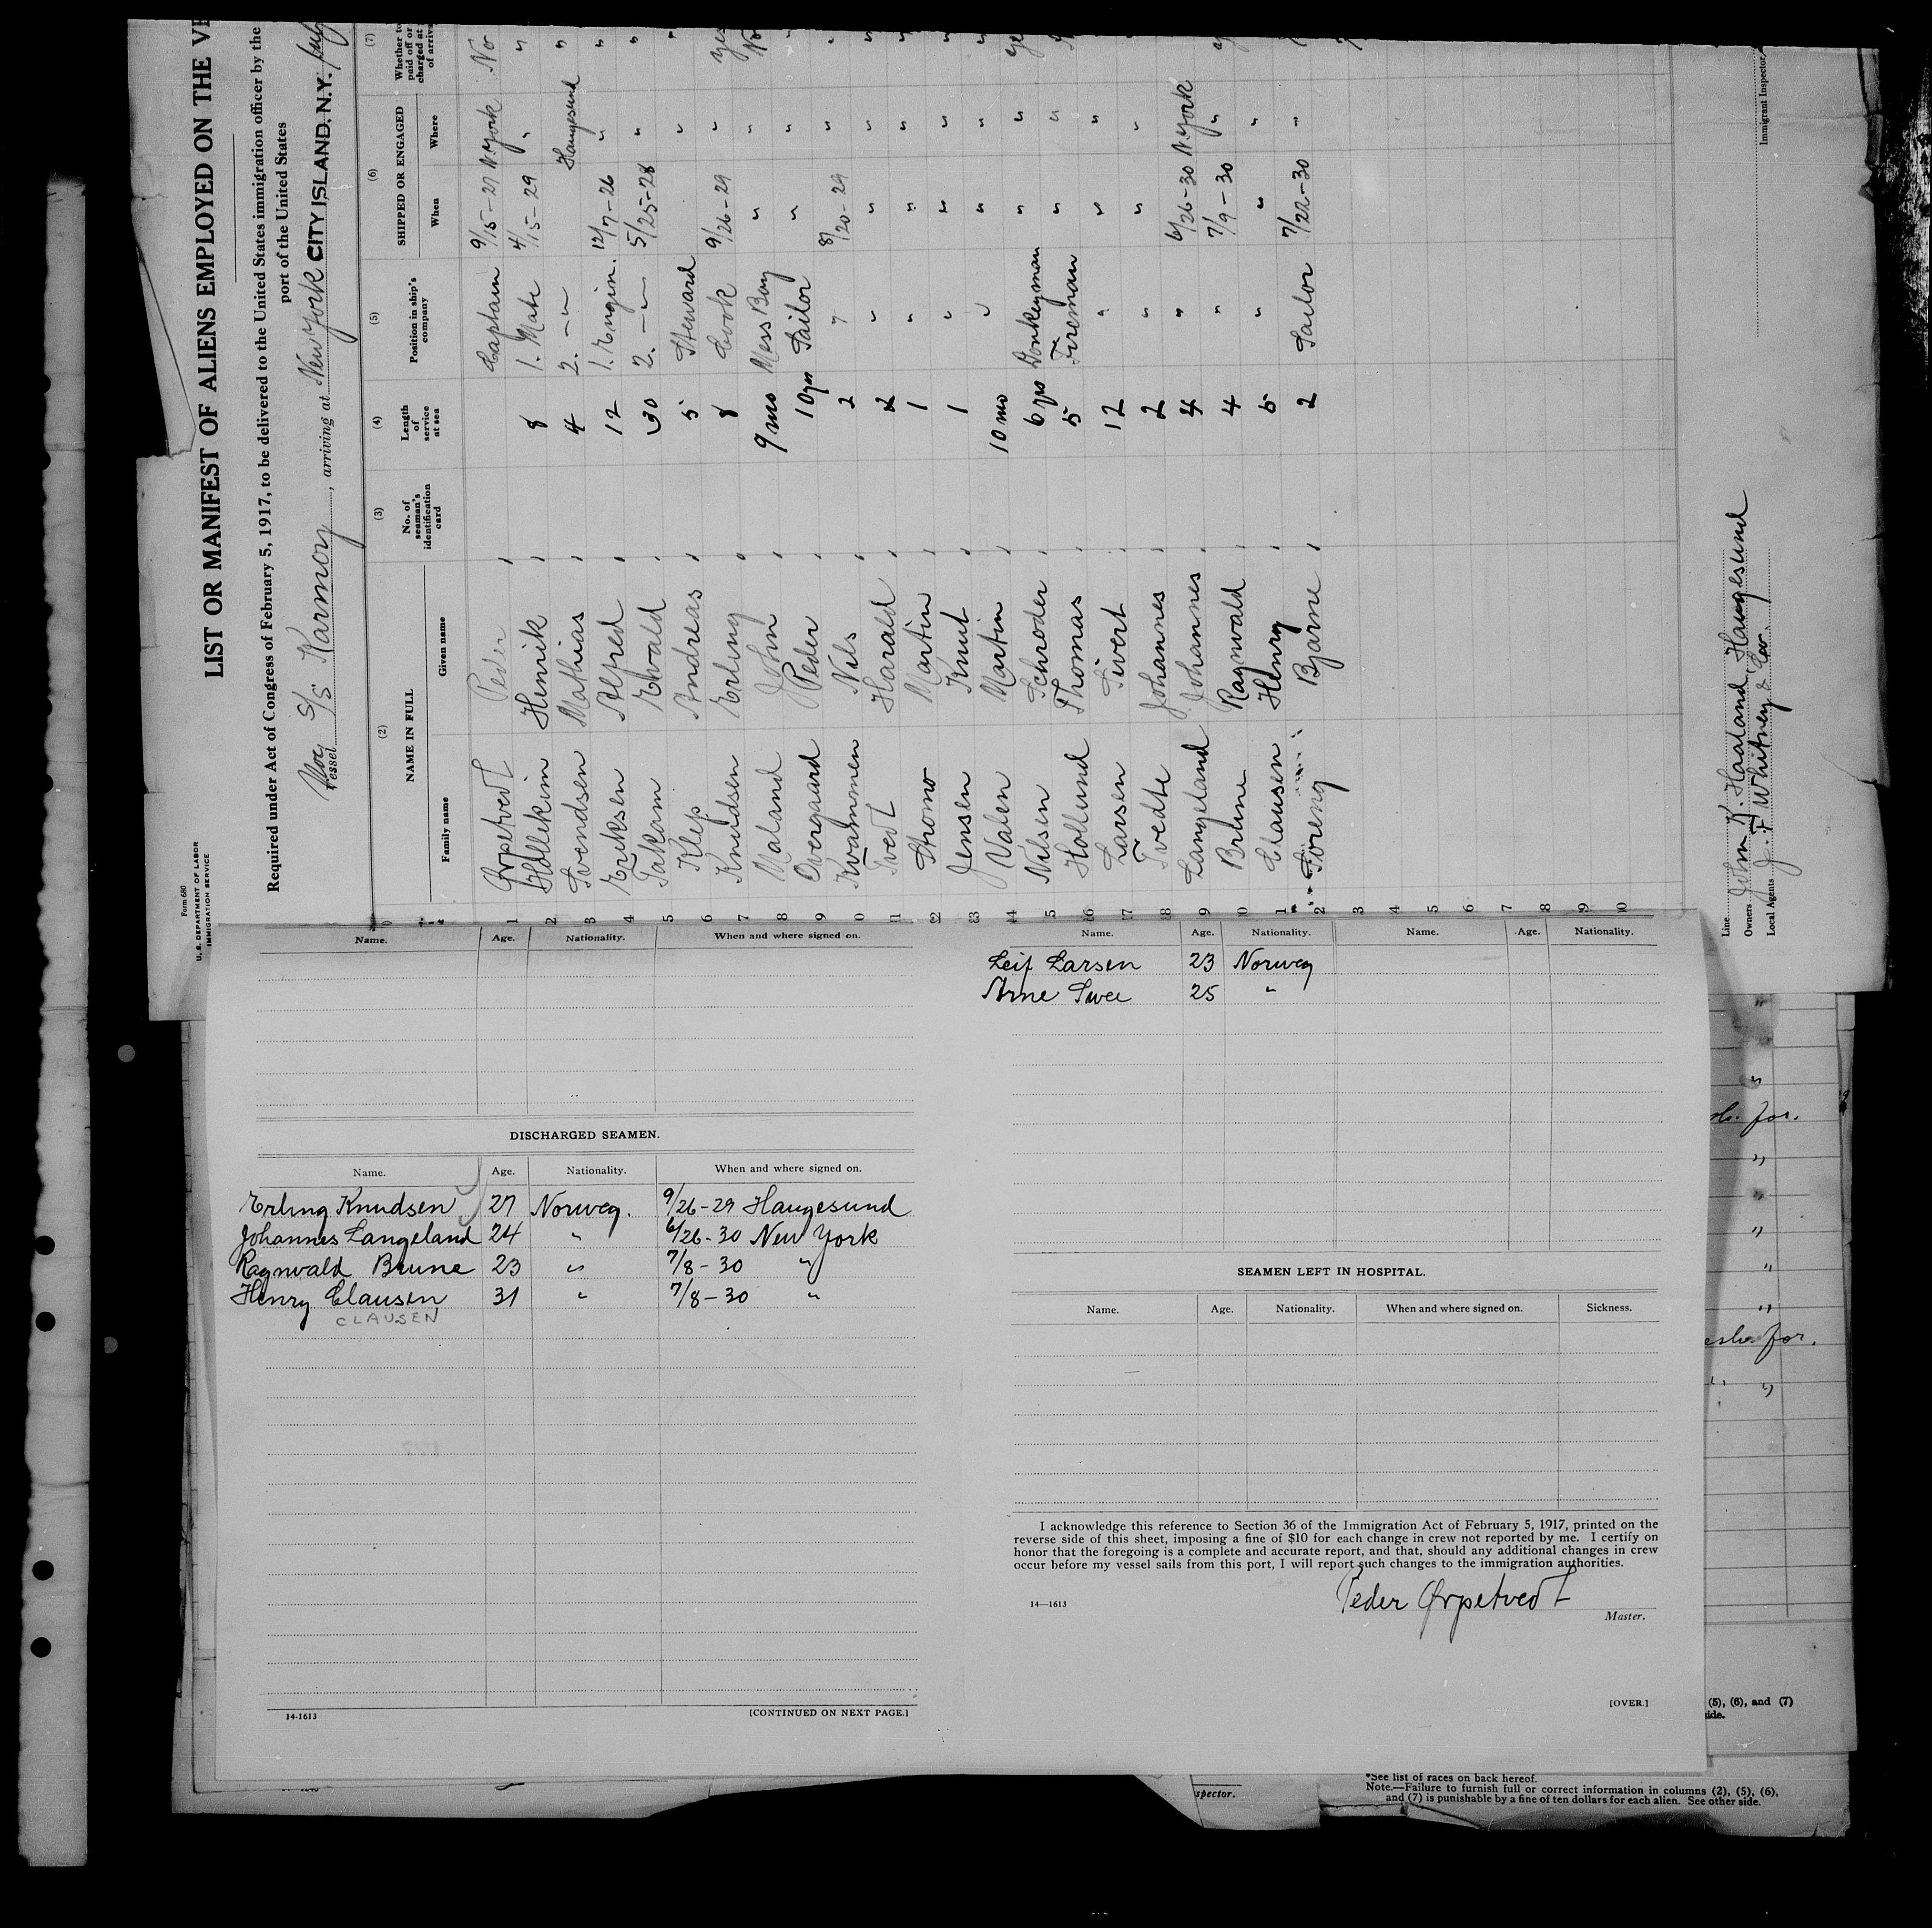 Form 680
U. S. DEPARTMENT OF LABOR
IMMIGRATION SERVICE
LIST OR MANIFEST OF ALIENS EMPLOYED ON THE VE
Required under Act of Congress of February 5, 1917, to be delivered to the United States immigration officer by the
port of the United States
Vessel S/S Karmoy, arriving at New York CITY ISLAND, N.Y.
(2) (3) (4) (5) (6) (7)
NAME IN FULL No. of seaman's identification card Length of service at sea Position in ship's company SHIPPED OR ENGAGED
Family name Given name When Where
1 Ørpetvedt Peder Captain 9/15-27 N York No
2 Hollekim Henrik 8 1. Mate 4/15-29 " "
3 Svendsen Mathias 4 2. -"- Haugesund "
4 Eriksen Alfred 12 1. Engin. 12/7-26 " "
5 Takam Edvald 30 2. -"- 5/25-28 " "
6 Klep Andreas 5 Steward " "
7 Knudsen Erling 8 Cook 9/26-29 " Yes
8 Maland John 9 mo Mess Boy " " No
9 Overgaard Peder 10 yrs Sailor " " "
0 Kvammen Nils 2 " 8/20-29 " "
11 Tvedt Harald 2 " " " "
12 Stromo Martin 1 " " " "
13 Jensen Knut 1 " " " "
14 Valen Martin 10 mo " " " "
5 Nilsen Schroder 6 yrs Donkeyman " "
16 Hollund Thomas 5 Fireman " "
17 Larsen Sivert 12 " " "
18 Tvedte Johannes 2 " " "
9 Langeland Johannes 4 " 6/26-30 N York
0 Brune Ragnvald 4 " 7/9-30 "
1 Clausen Henry 5 " " "
2 Soreng Bjarne 2 Sailor 7/22-30 "
3
4
5
6
7
8
9
0
Line
Owners John K. Haaland Haugesund
Local Agents J. F. Whitney & Co.
Immigrant Inspector
Name. Age. Nationality. When and where signed on.
DISCHARGED SEAMEN.
Name. Age. Nationality. When and where signed on.
Erling Knudsen 27 Norweg. 9/26-29 Haugesund
Johannes Langeland 24 " 6/26-30 New York
Ragnvald Brune 23 " 7/8-30 "
Henry Clausen 31 " 7/8-30 "
CLAUSEN
14-1613 [CONTINUED ON NEXT PAGE.]
Name. Age. Nationality. Name. Age. Nationality.
Leif Larsen 23 Norweg
Arne 25 "
SEAMEN LEFT IN HOSPITAL.
Name. Age. Nationality. When and where signed on. Sickness.
I acknowledge this reference to Section 36 of the Immigration Act of February 5, 1917, printed on the
reverse side of this sheet, imposing a fine of $10 for each change in crew not reported by me. I certify on
honor that the foregoing is a complete and accurate report, and that, should any additional changes in crew
occur before my vessel sails from this port, I will report such changes to the immigration authorities.
Peder Ørpetvedt
14—1613 Master.
[OVER.]
for.
for.
(5), (6), and (7)
side.
spector.
*See list of races on back hereof.
Note.—Failure to furnish full or correct information in columns (2), (5), (6),
and (7) is punishable by a fine of ten dollars for each alien. See other side.